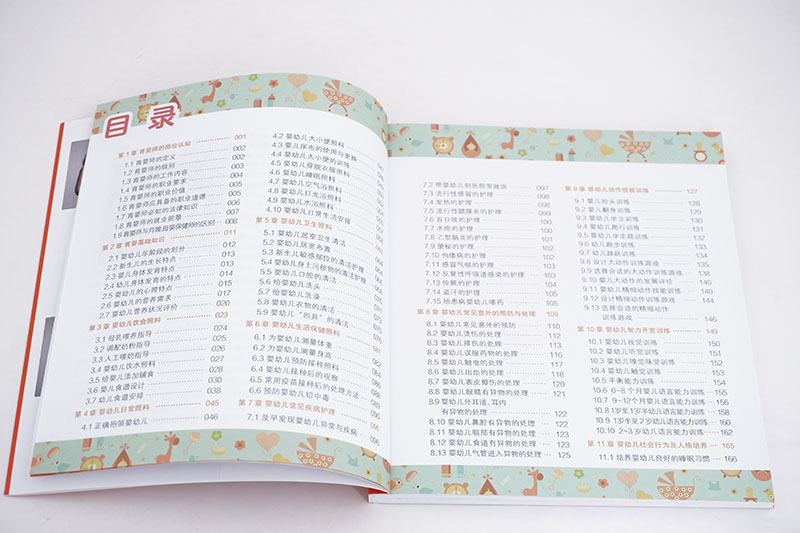 目 录
第1章 育婴师的岗位认知 001
1.1 育婴师的定义 002
1.2 育婴师的级别 002
1.3 育婴师的工作内容 003
1.4 育婴师的职业要求 004
1.5 育婴师的职业价值
1.6 育婴师应具备的职业道德
1.7 育婴师必知的法律知识
1.8 育婴师的就业前景
1.9 育婴师与月嫂、母婴保健师的区别 008
第2章 育婴基础知识 011
2.1 婴幼儿年龄段的划分 012
2.2 新生儿的生长特点 013
2.3 婴儿身体发育特点
2.4 幼儿身体发育的特点
2.5 婴幼儿的心理特点 015
2.6 婴幼儿的营养需求 017
2.7 婴幼儿营养状况评价 020
第3章 婴幼儿饮食照料 023
3.1 母乳喂养指导 024
3.2 调配奶粉指导 025
3.3 人工喂奶指导 026
3.4 婴幼儿饮水照料
3.5 给婴儿添加辅食
3.6 婴儿食谱设计
3.7 幼儿食谱安排
第4章 婴幼儿日常照料 045
4.1 正确抱领婴幼儿 046
4.2 婴幼儿大小便照料
4.3 婴儿尿布的使用与更换
4.4 婴幼儿大小便的训练
4.5 婴幼儿穿脱衣服照料
4.6 婴幼儿睡眠照料
4.7 婴幼儿空气浴照料
4.8 婴幼儿日光浴照料
4.9 婴幼儿水浴照料
4.10 婴幼儿日常生活安排
第5章 婴幼儿卫生照料
5.1 婴幼儿居室卫生清洁
5.2 婴幼儿居室布置
5.3 新生儿敏感部位的清洁护理
5.4 婴幼儿身上污秽物的清洁护理
5.5 婴幼儿口腔的清洁
5.6 给婴幼儿洗头
5.7 给婴幼儿洗澡
5.8 婴幼儿衣物的清洁
5.9 婴幼儿“四具”的清洁
第6章 婴幼儿生活保健照料
6.1 为婴幼儿测量体重
6.2 为婴幼儿测量身高
6.3 婴幼儿预防接种照料
6.4 婴幼儿接种后的观察
6.5 常用疫苗接种后的处理方法
6.6 预防婴幼儿铅中毒
第7章 婴幼儿常见疾病护理 095
7.1 及早发现婴幼儿异常与疾病 096
7.2 带婴幼儿到医院里就医 097
7.3 流行性感冒的护理
7.4 发热的护理
7.5 流行性腮腺炎的护理
7.6 百日咳的护理
7.7 水痘的护理
7.8 乙型脑炎的护理
7.9 便秘的护理
7.10 佝偻病的护理
7.11 感冒气喘的护理
7.12 反复性呼吸道感染的护理 103
7.13 惊厥的护理 104
7.14 盗汗的护理 105
7.15 给患病婴幼儿喂药 105
第8章 婴幼儿常见意外的预防与处理 109
8.1 婴幼儿常见意外的预防 110
8.2 婴幼儿烫伤的处理
8.3 婴幼儿摔伤的处理 113
8.4 婴幼儿误服药物的处理
8.5 婴幼儿触电的处理
8.6 婴幼儿出血的处理 118
8.7 婴幼儿表皮擦伤的处理 120
8.8 婴幼儿眼睛有异物的处理 121
8.9 婴幼儿外耳道、耳内
有异物的处理 122
8.10 婴幼儿鼻腔有异物的处理 122
8.11 婴幼儿咽部有异物的处理 123
8.12 婴幼儿食道有异物的处理
8.13 婴幼儿气管进入异物的处理 125
第9章 婴幼儿动作技能训练 127
9.1 婴儿抬头训练 128
9.2 婴儿翻身训练 129
9.3 婴幼儿坐立训练
9.4 婴幼儿爬行训练
9.5 婴幼儿学走路训练
9.6 幼儿跑步训练
9.7 幼儿跳跃训练
9.8 设计大动作训练游戏
9.9 选择合适的大动作训练游戏
9.10 婴儿大动作的发展评价
9.11 婴幼儿精细动作技能训练
9.12 设计精细动作训练游戏 144
9.13 选择合适的精细动作
训练游戏 146
第10章 婴幼儿智力开发训练 149
10.1 婴幼儿视觉训练 150
10.2 婴幼儿听觉训练
10.3 婴幼儿嗅觉味觉训练
10.4 婴幼儿触觉训练
10.5 平衡能力训练
10.6 0~8个月婴儿语言能力训练
10.7 9~12个月婴儿语言能力训练
10.8 1岁至1岁半幼儿语言能力训练
10.9 1岁半至2岁幼儿语言能力训练
10.10 2~3岁幼儿语言能力训练 162
第11章 婴幼儿社会行为及人格培养 165
11.1 培养婴幼儿良好的睡眠习惯 166